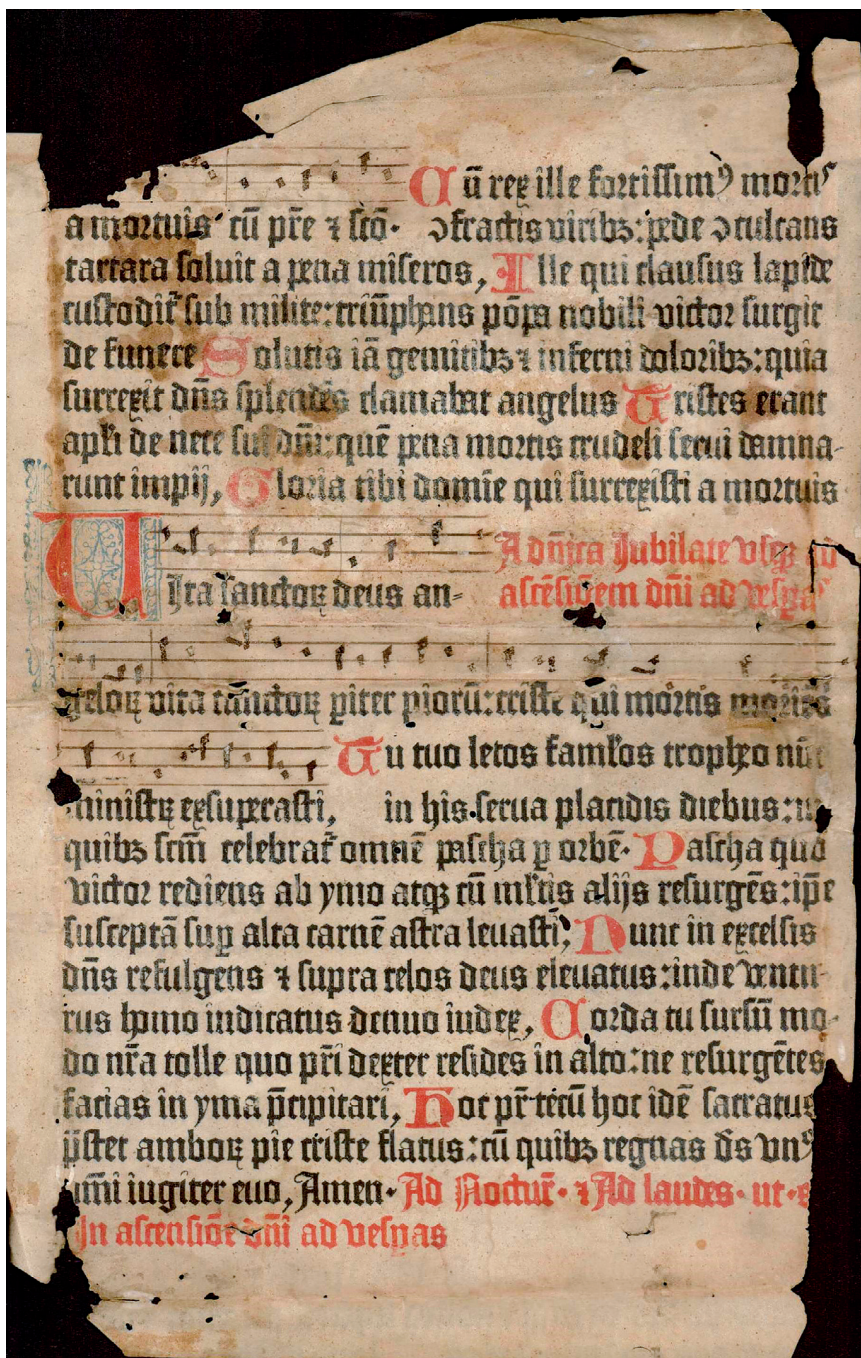 Cū rex ille fortissimꝰ mortis
a mortuis cū pr̄e ⁊ scō. ↄfractis viribꝫ: pede ↄculcans
tartara soluit a pena miseros, Ille qui clausus lapide
custodit᷑ sub milite: triūphans pōpa nobili victor surgit
de funere Solutis iā gemitibꝫ ⁊ inferni doloribꝫ: quia
surrexit dn̄s splendēs clamabat angelus Tristes erant
apl̄i de nece sui dn̄i: quē pena mortis crudeli serui damna-
runt impij, Gloria tibi domīe qui surrexisti a mortuis
A dn̄ica Jubilate vsqꝫ ad
Uita sanctoꝝ deus an-
ascēsionem dn̄i ad vesꝑas
geloꝝ vita cūctoꝝ ꝑiter pioꝝ: criste qui mortis mortis
Tu tuo letos faml̄os tropheo nūc
ministꝝ exsuperasti, in his serua plaudis diebus: in
quibꝫ scm̄ celebrat᷑ omnē pascha ꝑ orbē. Pascha quo
victor rediens ab ymo atqꝫ cū ml̄tis alijs resurgēs: ip̄e
susceptā suꝑ alta carnē astra leuasti, Nunc in excelsis
dn̄s refulgens ⁊ supra celos deus eleuatus: inde ventu-
rus homo indicatus denuo iudex, Corda tu sursū mo-
do nr̄a tolle quo pr̄i dexter resides in alto: ne resurgētes
facias in yma p̄cipitari, Hoc pr̄ tecū hoc idē sacratus
p̄stet amboꝝ pie criste flatus: cū quibꝫ regnas ds̄ vnꝰ
om̄i iugiter euo, Amen. Ad Noctur̄. ⁊ Ad laudes. ut. s
In ascensiōe dn̄i ad vesꝑas